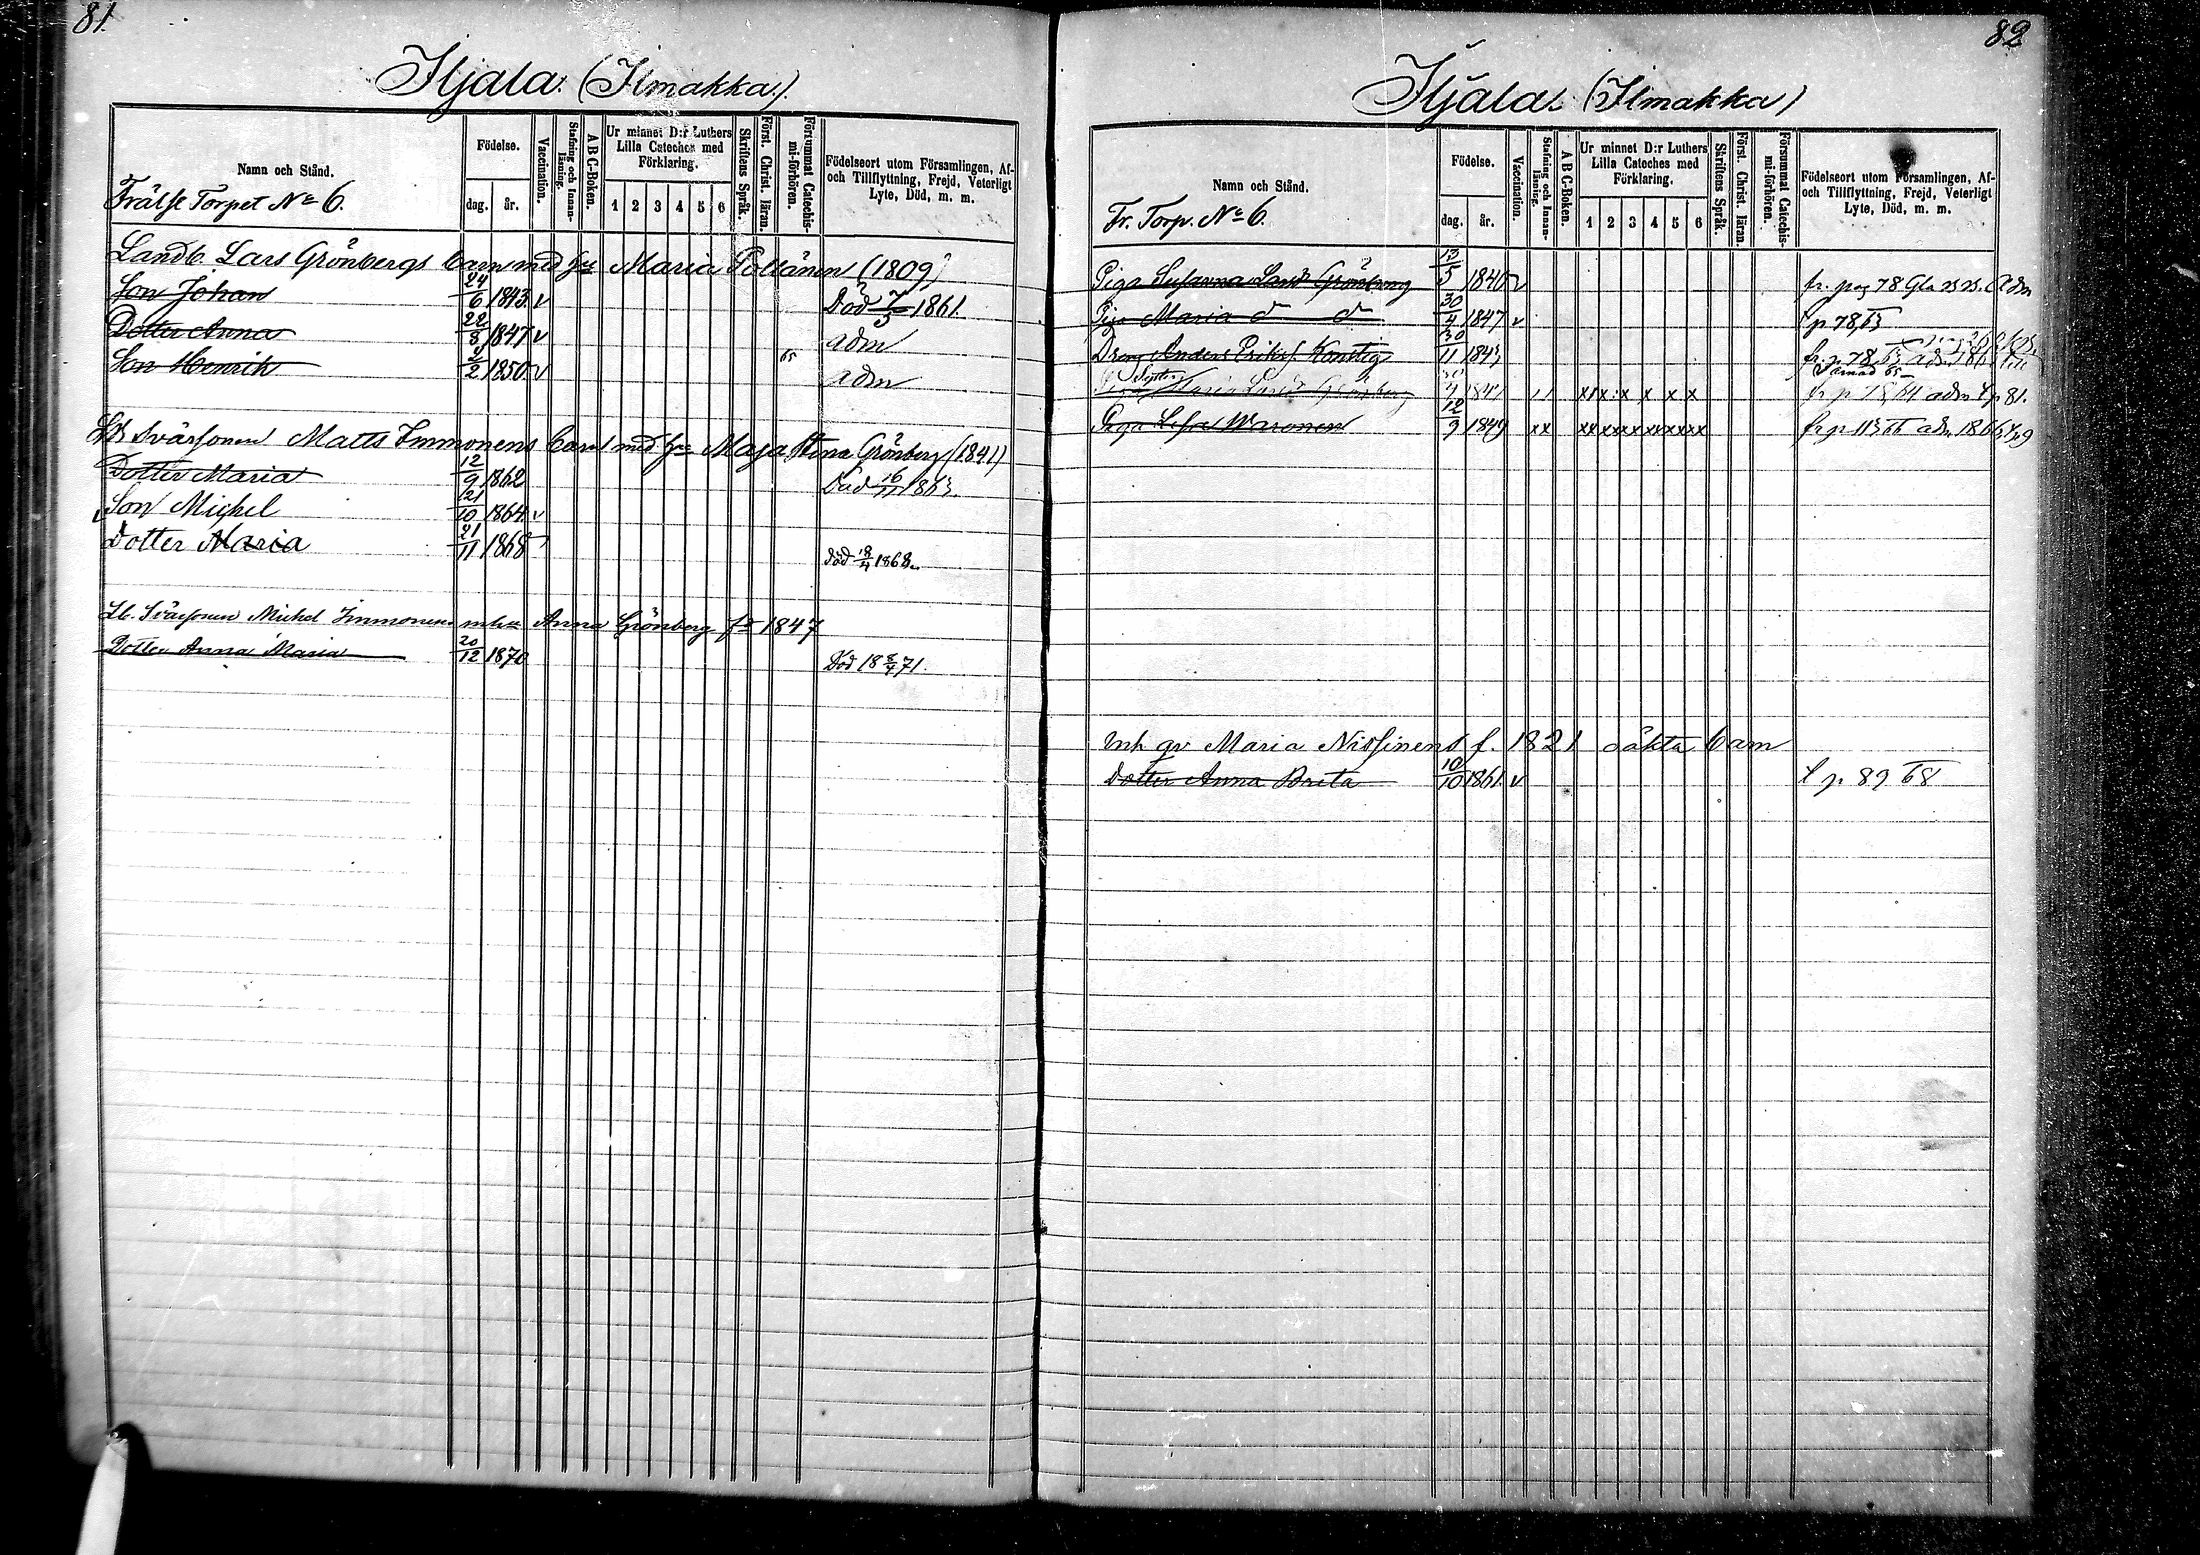 81.
Iljala. (Ilmakka.)
Namn och Stånd.
Frälse Torpet No 6.
Födelse.
dag. år.
Vaccination.
Stafning och Innanläsning.
A B C-Boken.
Ur minnet D:r Luthers Lilla Cateches med Förklaring.
1 2 3 4 5 6
Skriftens Språk.
Först. Christ. läran.
Försummat Catechismi-förhören.
Födelseort utom Församlingen, Af- och Tillflyttning, Frejd, Veterligt Lyte, Död, m. m.
Landb. Lars Grönbergs barn med hu Maria Pöllänen (1809)
Son Johan 24/6 1843. v Död 7/5 1861.
Dotter Anna 22/8 1847 v adm
Son Henrik 2 1850. v 65 adm
Lb Svärsonen Matts Immonens barn med hu Maja Stina Grönberg (1841)
Dotter Maria 12/9 1862 Död 16/11 1863.
Son Michel 21/10 1864. v
Dotter Maria 21/11 1868 död 18/4 1868.
Lb. Svärsonen Michel Immonens m hu Anna Grönberg f 1847
Dotter Anna Maria 20/12 1870 Död 18 8/4 71.
82
Iljala. (Ilmakka)
Namn och Stånd.
Fr. Torp. No 6.
Födelse.
dag. år.
Vaccination.
Stafning och Innanläsning.
A B C-Boken.
Ur minnet D:r Luthers Lilla Cateches med Förklaring.
1 2 3 4 5 6
Skriftens Språk.
Först. Christ. läran.
Försummat Catechismi-förhören.
Födelseort utom Församlingen, Af- och Tillflyttning, Frejd, Veterligt Lyte, Död, m. m.
Piga Susanna Larsdr Grönberg 13/5 1840 v fr. pag 78 Gla adm
Piga Maria d d 30/4 1847 v t p 78, 63
Dreng Anders Eriks. Konttig 30/11 1843 fr. p. 78, 63 adm 186
Maria Larsdr Grönberg 4 1847 x x x x x x fr p 78, 64 adm t p 81.
Piga Lisa Waronen 12/9 1849 xx xx xx xx xx xx fr p 113 66 adm 1866
Inh qv Maria Nissinens f. 1821 oäkta barn
Dotter Anna Brita 10/10 1861. v t p 89 68